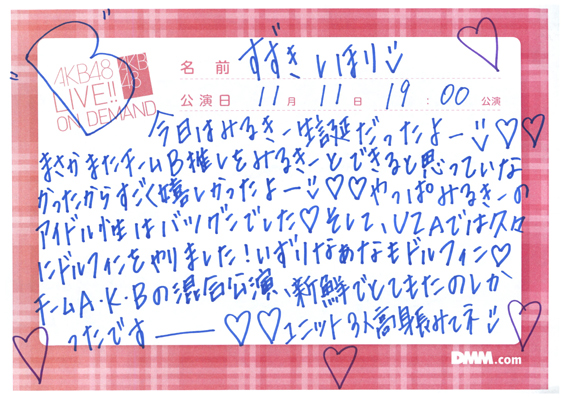 AKB48
LIVE!!
ON DEMAND
AKB
48
名前 すずきしほり
公演日 11月 11日 19:00 公演
今日はみるきー生誕だったよー♡♡
まさかまたチームB推しをみるきーとできると思っていな
かったからすごく嬉しかったよー♡♡やっぱみるきーの
アイドル性はバツグンでした♡そして、UZAでは久々
にドルフィンをやりました!いずりなあなもドルフィン♡
チームA・K・Bの混合公演、新鮮でとてもたのしか
ったです——♡♡ユニット3人高身長みてネ
DMM.com